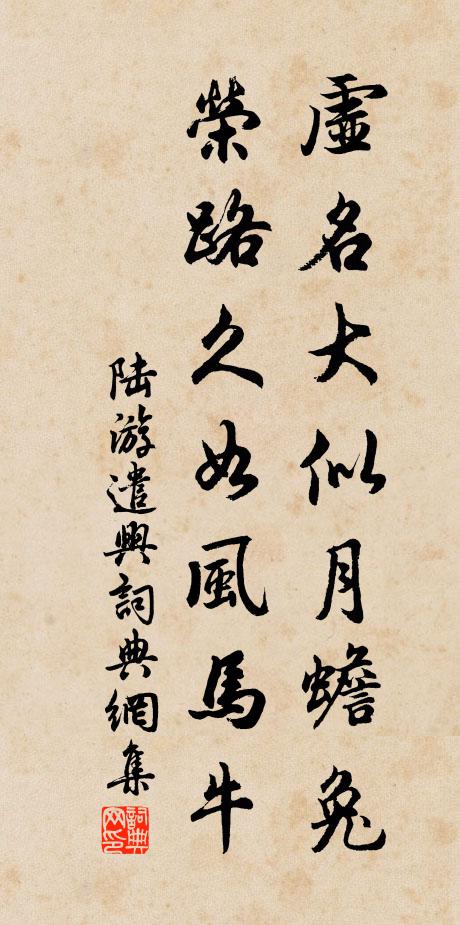 虛名大似月蟾兔
榮路久如風馬牛
陸游遣興詞典網集
詞典网印